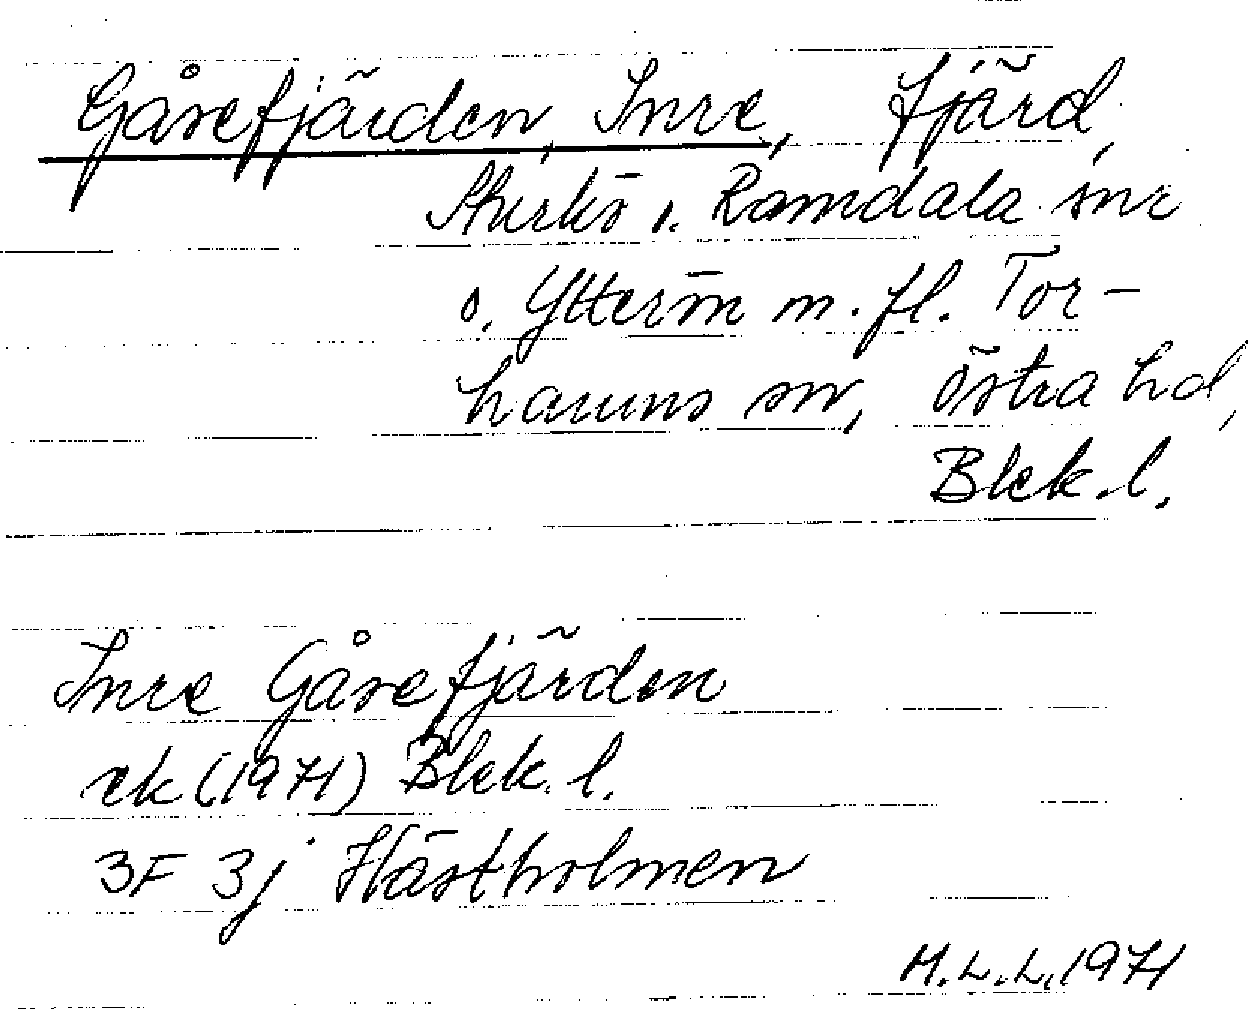 Gåsefjärden, Inre, fjärd,
Sturkö o. Ramdala snr
o. Ytterön m.fl. Tor-
hamns sn, Östra hd,
Blek.l.
Inre Gåsefjärden
ek (1971) Blek. l.
3F 3j Hästholmen
M.L.L. 1971